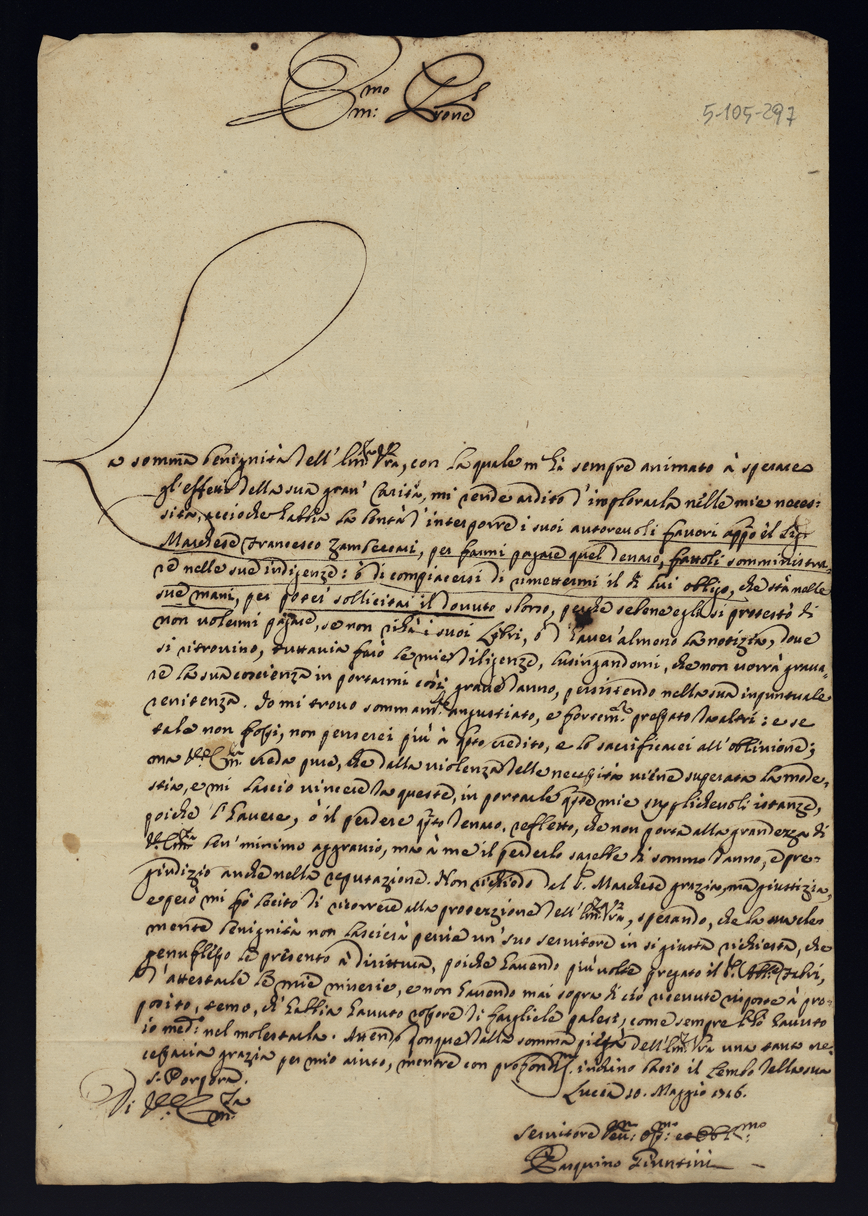 Em.mo Prone
5-105-297
La somma benignità dell' Em.za V.ra, con la quale m'hà sempre animato à sperare
gl'effetti della sua gran' Carità, mi rende ardito d'implorarla nelle mie neces:
sità, acciòche habbia la bontà d'interporre i suoi autorevoli favori appo il Sig.r
Marchese Francesco Zambeccari, per farmi pagare quel denaro, frattoli somministra,,
re nelle sue indigenze: ò di compiacersi di rimettermi il di lui obligo, che stà nelle
sue mani, per poter sollicitar il dovuto sborso, perche sebene egli si protestò di
non volermi pagare, se non rihà i suoi Libri, ò d'haver' almeno la notizia, dove
si ritrovino, tuttavia farò le mie diligenze, lusingandomi, che non vorrà grava,,
re la sua coscienza in portarmi così grave danno, persistendo nella sua inpuntuale
renitenza. Io mi trovo sommam.te angustiato, e fortem.te pressato da altri: e se
tale non fossi, non penserei più à q.to credito, e lo sacrificarei all'oblivione;
ma V.ra Em.za creda pure, che dalla violenza delle necessità viene superata la mode,,
stia, e mi lascio vincere da queste, in portarle q.te mie supplichevoli istanze,
poiche l'havere, ò il perdere q.to denaro, refletto, che non porta alla grandezza di
V. Em.za ben' minimo aggravio, ma à me il perderlo sarebbe di sommo danno, e pre,,
giudizio anche nella reputazione. Non richiedo del S. Marchese grazia, ma giustizia,
e però mi fò lecito di ricorrere alla protezzione dell' Em.za V.ra, sperando, che la
mente benignità non lascierà perire un' suo servitore in si giusta richiesta, che
genuflesso le presento à dirittura, poiche havendo più volte pregato il S.
d'attestarle le mie miserie, e non havendo mai sopra di ciò ricevute risposte à pro,,
posito, temo, ch'habbia havuto rossore di fargliele palesi, come sempre l'hò havuto
io med.o nel molestarla. Attendo dunque dalla somma pietà dell' Em.za V.ra una tanto ne,,
cessaria grazia per mio aiuto, mentre con profondiss.o inchino bacio il Lembo della sua
S. Porpora.
Di V. Em.za
Lucca 10. Maggio 1716.
Servitore Um.o D.mo et Obb.mo
Pasquino Giuntini